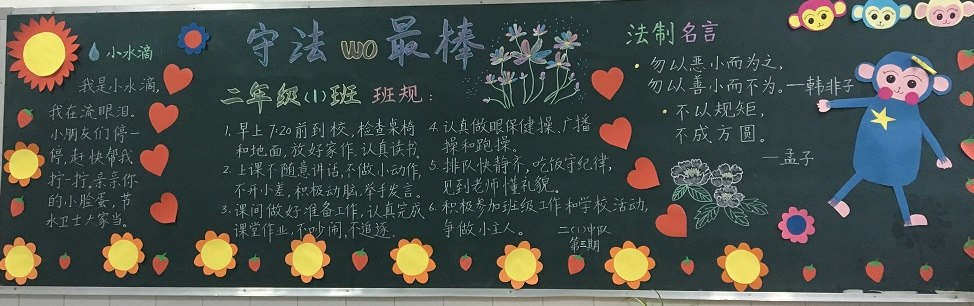 小水滴
我是小水滴,
我在流眼泪。
小朋友们停一
停,赶快帮我
拧一拧,亲亲你
的小脸蛋,节
水卫士大家当。
守法 wo 最棒
二年级(1)班 班规:
1.早上7:20前到校,检查桌椅
和地面,放好家作,认真读书.
2.上课不随意讲话,不做小动作,
不开小差,积极动脑,举手发言。
3.课间做好准备工作,认真完成
课堂作业,不吵闹,不追逐.
4.认真做眼保健操、广播
操和跑操。
5.排队快静齐,吃饭守纪律,
见到老师懂礼貌。
6.积极参加班级工作和学校活动,
争做小主人。
二(1)中队
第三期
法制名言
勿以恶小而为之,
勿以善小而不为。—韩非子
不以规矩,
不成方圆。
—孟子